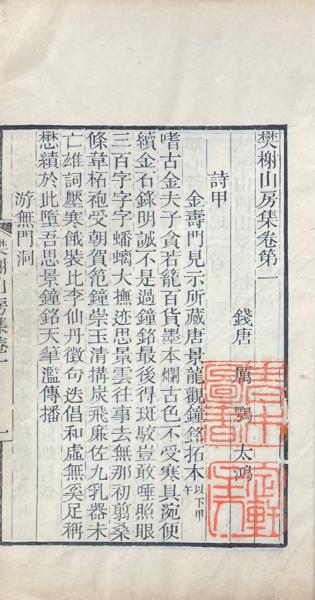 樊榭山房集卷第一
錢唐 厲鶚 太鴻
詩甲
金壽門見示所藏唐景龍觀鐘銘拓本以下甲午
嗜古金夫子貪若籠百貨墨本爛古色不受寒具涴便
續金石錄明誠不是過鐘銘最後得斑駮豈敢唾照眼
三百字字字蟠螭大撫迹思景雲往事去無那初翦桑
條韋柘袍受朝賀范鐘崇玉清搆炭飛廉佐九乳器未
亡雄詞壓寒餓裝比李仙丹徵句迭倡和虛無奚足稱
懋績於此墮吾思景鐘銘天筆濫傳播
游無門洞
樊榭山房集卷一
一